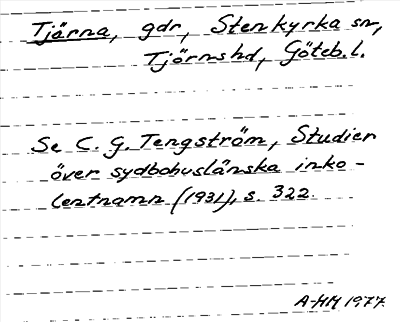 Tjärna, gdr, Stenkyrka sn,
Tjörns hd, Göteb. l.
Se C. G. Tengström, Studier
över sydbohuslänska inko-
lentnamn (1931), s. 322.
A-HM 1977.